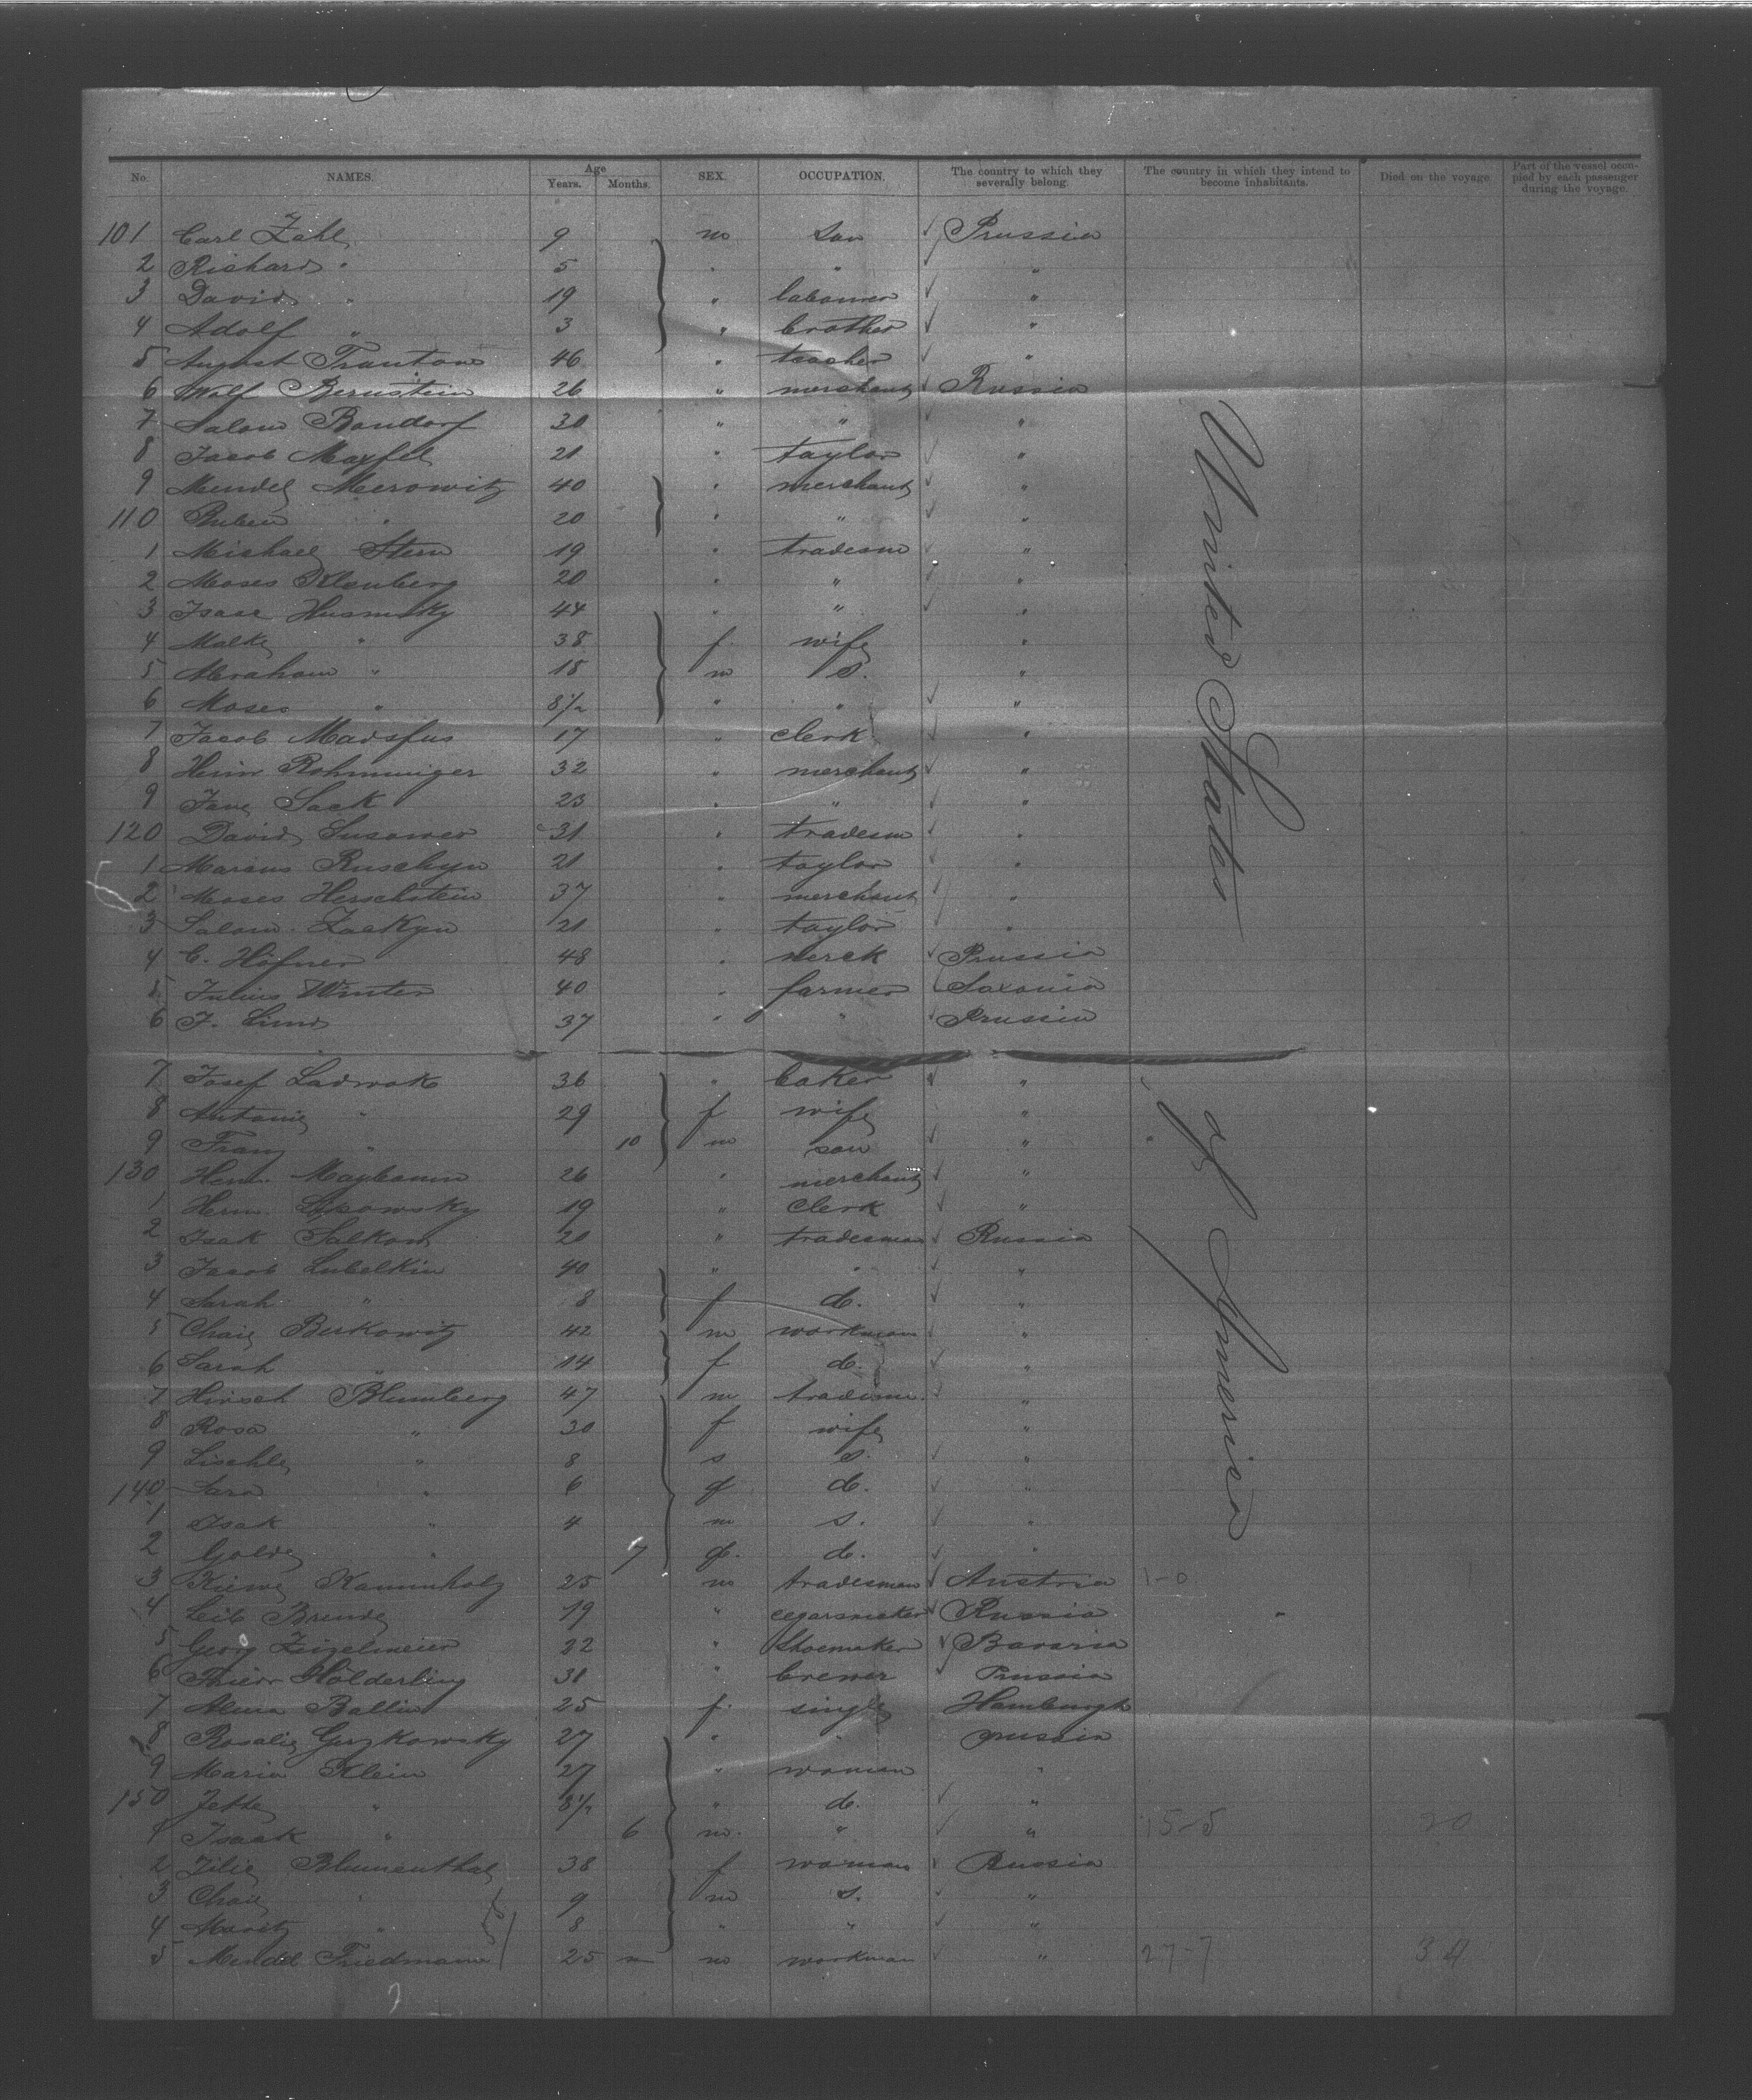 No. NAMES. Age Years. Months. SEX. OCCUPATION. The country to which they severally belong. The country in which they intend to become inhabitants. Died on the voyage. Part of the vessel occupied by each passenger during the voyage.
101 Carl Zahl 9 m son Prussia
2 Richard " 5 " " "
3 David " 19 " labourer "
4 Adolf " 3 " brother "
5 August 46 " teacher "
6 Wolf Bernstein 26 " merchant Russia
7 Salom Bandorf 30 " " "
8 Jacob 21 " taylor "
9 Mendel Merowitz 40 " merchant "
110 Ruben " 20 " " "
1 Michael Stern 19 " tradesm "
2 Moses Klenberg 20 " " "
3 Isaac 44 " " "
4 Malke " 38 f wife "
5 Abraham " 18 m s. "
6 Moses " 8½ " " "
7 Jacob 17 " clerk "
8 32 " merchant "
9 Sack 23 " " "
120 David 31 " tradesm "
1 Marcus 21 " taylor "
2 Moses Herschstein 37 " merchant "
3 Salom. 21 " taylor "
4 C. Höfner 48 " Prussia
5 Julius Winter 40 " farmer Saxonia
6 37 " " Prussia
7 Josef 36 " baker "
8 Antonie " 29 f wife "
9 Franz " 10 m son "
130 Herm. Maybaum 26 " merchant "
1 Herm. Lipowsky 19 " clerk "
2 Isak Salkow 20 " tradesman Russia
3 Jacob Lubelkin 40 " " "
4 Sarah " 8 f d. "
5 Berkowitz 42 m workman "
6 Sarah " 14 f d. "
7 Hirsch Blumberg 47 m tradesm. "
8 Rosa " 30 f wife "
9 " 8 s s. "
140 Sara " 6 f d. "
1 Isak " 4 m s. "
2 Golde " 7 f. d. "
3 25 m tradesman Austria
4 Leib 19 " Russia
5 Georg 22 " Shoemaker Bavaria
6 Hölderling 31 " brewer Prussia
7 Ballin 25 f. single Hamburgh
8 Rosalie 27 " " prussia
9 Maria Klein 27 " woman "
150 Jette " 8½ " d. "
1 Isaak " 6 m. " " 15-5 20
2 Zilie Blumenthal 38 f woman Russia
3 " 9 m s. "
4 Moritz " 8 " " "
5 Mendel Friedmann 25 m workman " 27-7
United States of America